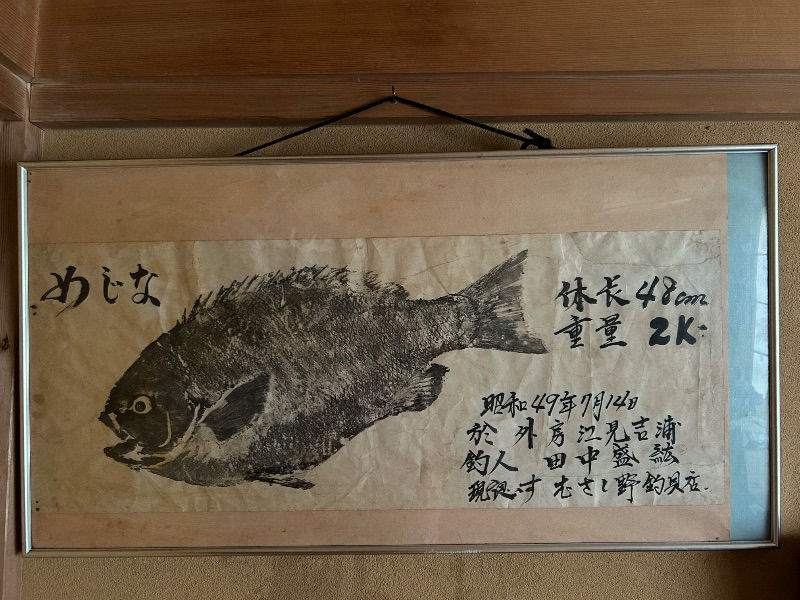 めじな
体長 48cm
重量 2K.
昭和49年7月14日
於 外房江見吉浦
釣人 田中盛紘
現認す むさし野釣具店.